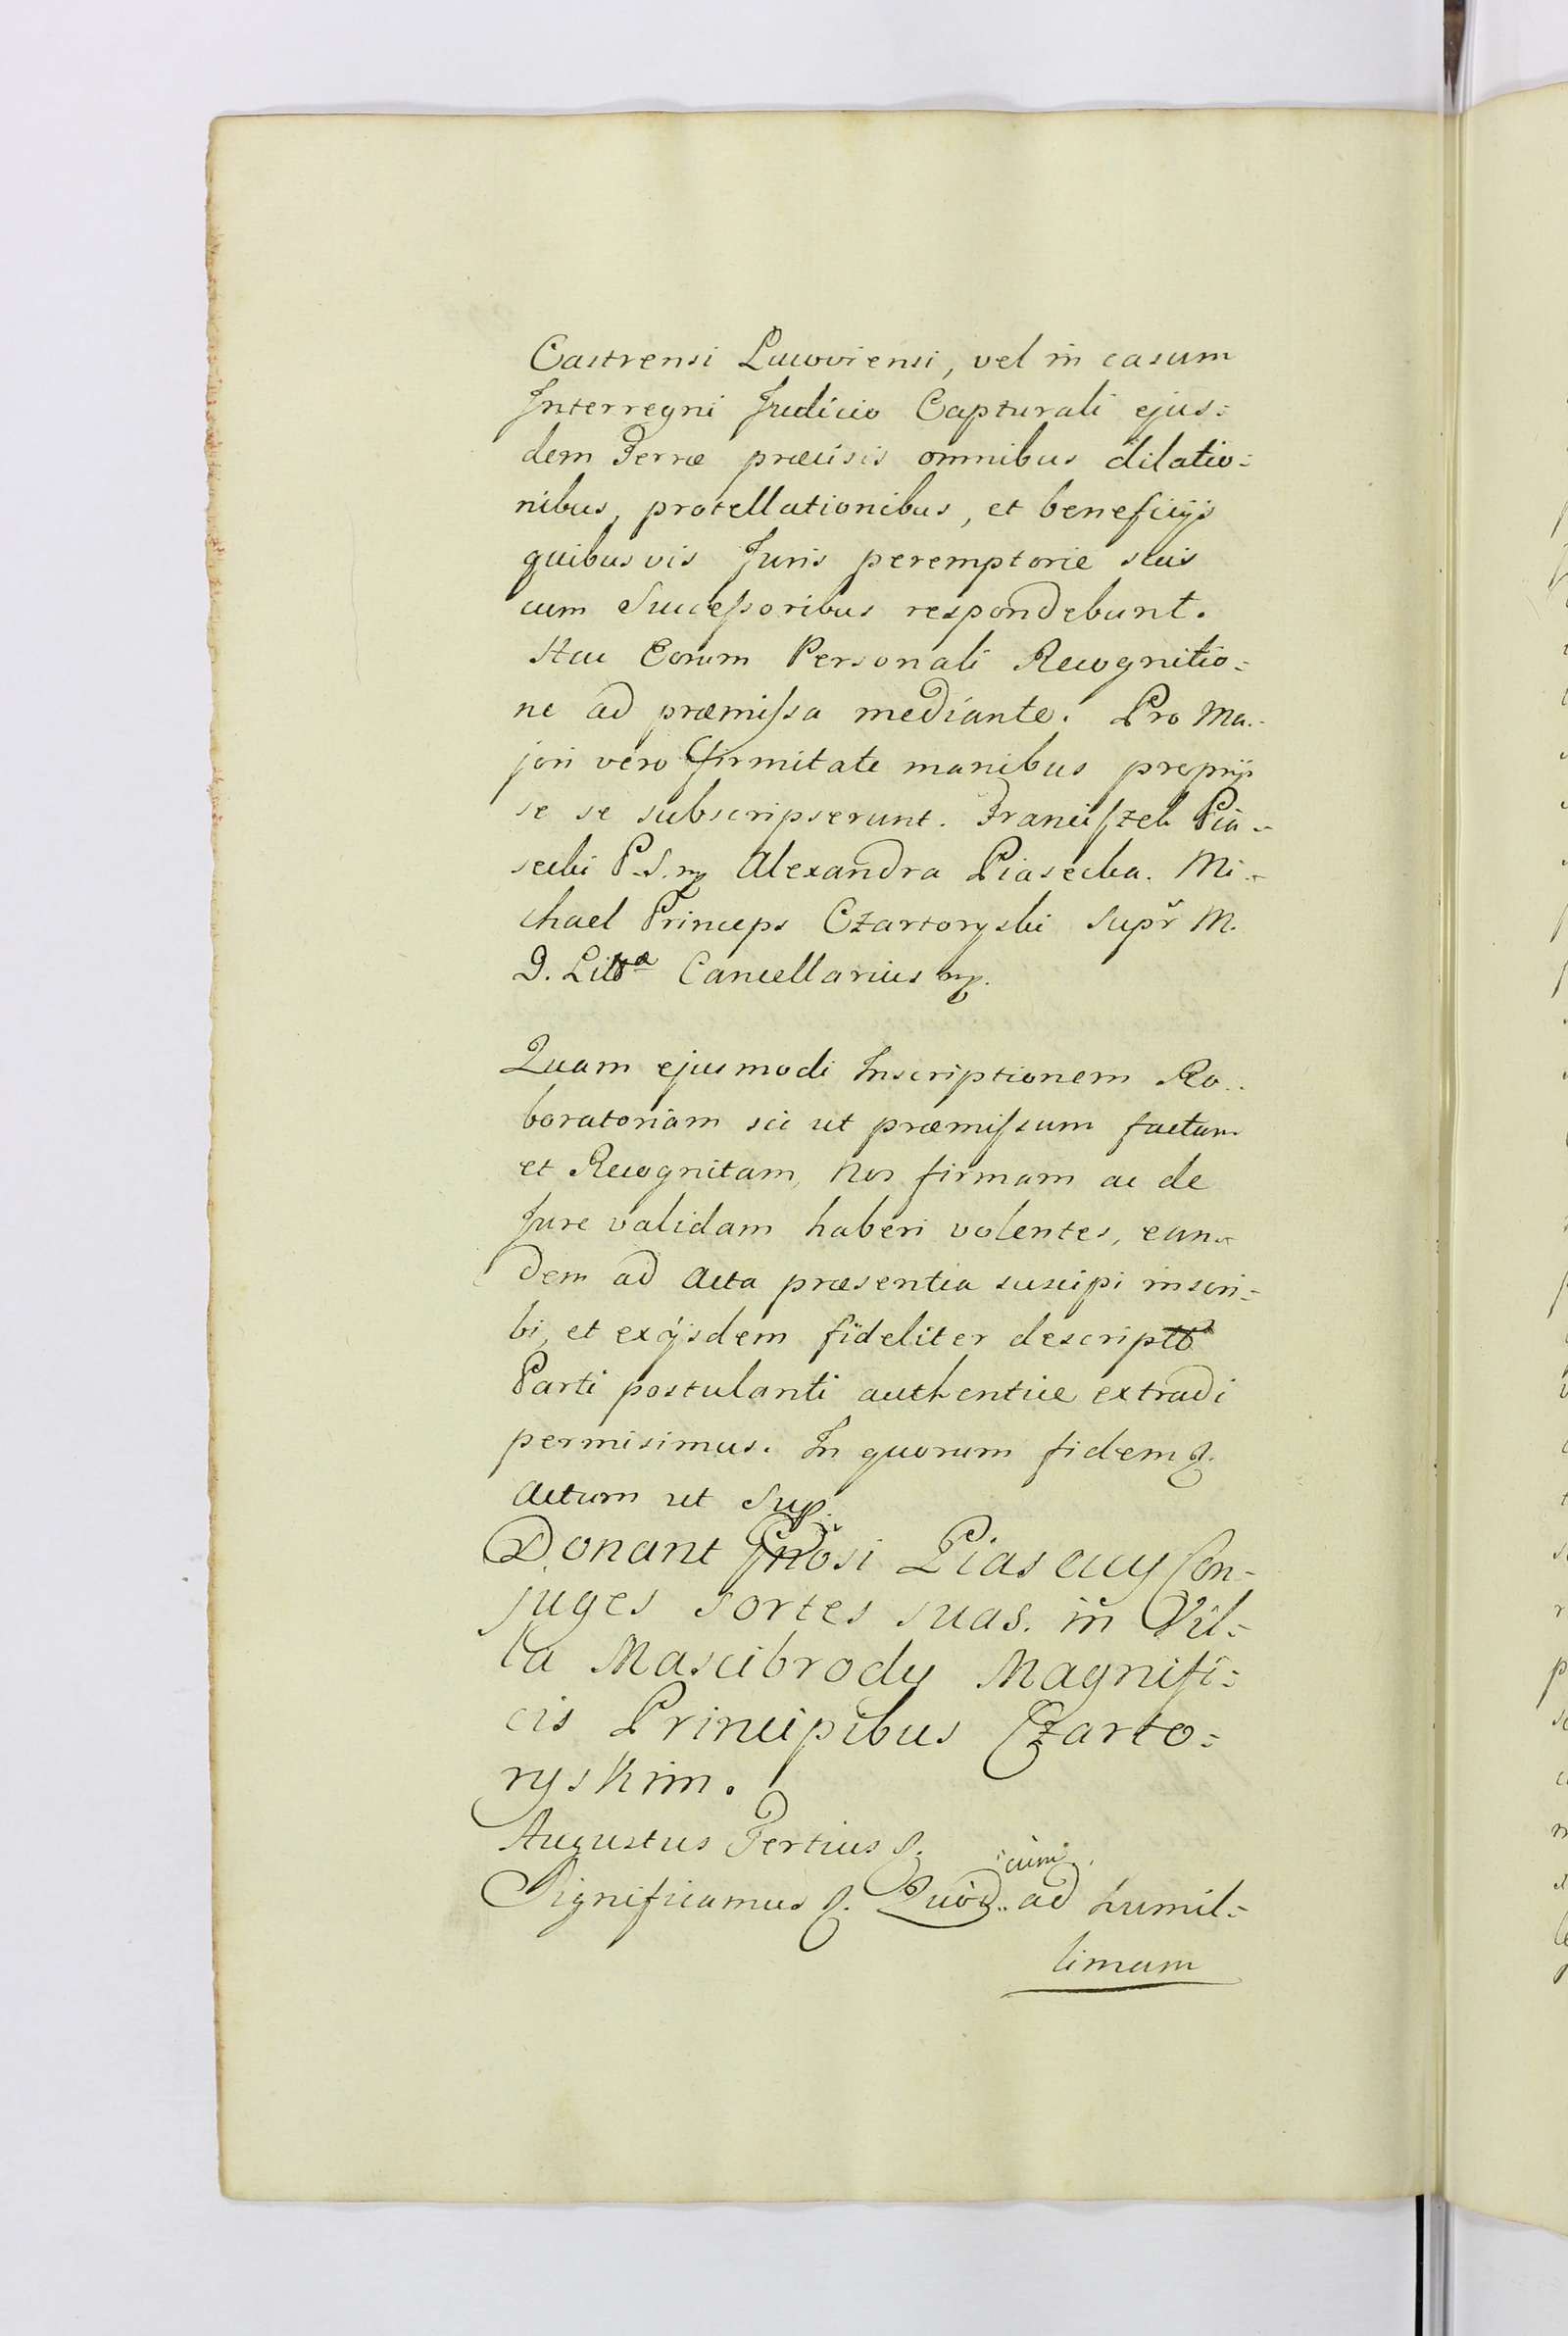 Castrensi Lucoviensi, vel in casum
Interregni Judicio Capturali ejus=
dem Terræ præcisis omnibus dilatio=
nibus, protellationibus, et beneficijs
quibusvis Juris peremptorie suis
cum Successoribus respondebunt.
Hac Eorum Personali Recognitio=
ne ad præmissa mediante. Pro Ma-
jori vero firmitate manibus proprijs
se se subscripserunt. Franciszek Pia-
secki P.S. mp Alexandra Piasecka. Mi-
chael Princeps Czartoryski Supr M.
D. Littæ Cancellarius mp.
Quam ejusmodi Inscriptionem Ro-
boratoriam sic ut præmissum factam
et Recognitam, Nos firmam ac de
Jure validam haberi volentes, ean-
dem ad Acta præsentia suscipi inscri=
bi, et ex ijsdem fideliter descriptt
Parti postulanti authentice extradi
permisimus. In quorum fidem &.
Actum ut Sup.
Donant Gnosi Piaseccy Con-
juges sortes suas in Vil=
la Mascibrody Magnifi=
cis Principibus Czarto=
ryskim.
Augustus Tertius &.
Significamus &. Quod cum ad humil=
limam